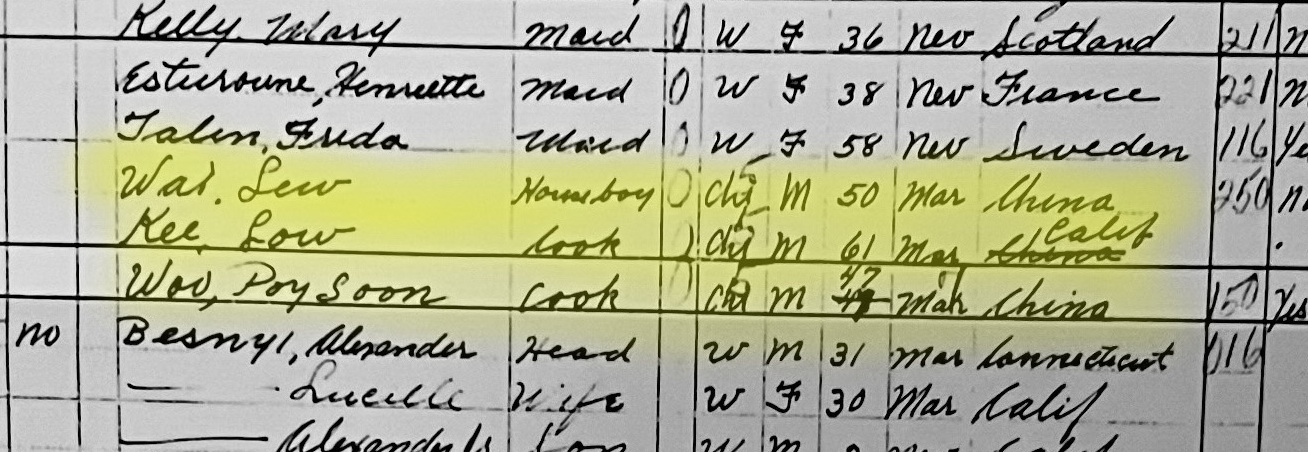 Kelly, Mary Maid 0 W F 36 Nev Scotland 211 n
Esturoune, Henriette Maid 0 W F 38 Nev France 221 n
Talen, Freda Maid 0 W F 58 Nev Sweden 116 Ye
Wai, Lew Houseboy 0 Chi M 50 Mar China 250 n
Kee, Low Cook Chi M 61 Mar China Calif
Woo, Poy Soon Cook 0 Chi M 47 Mar China 150 Yes
no Besnyi, Alexander Head W M 31 Mar Connecticut 016
— Lucille Wife W F 30 Mar Calif
— Alexander Jr Son W M